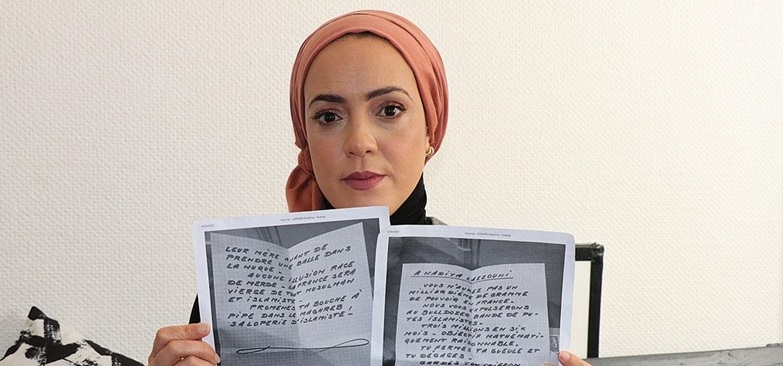 LEUR MÈRE AVANT DE
PRENDRE UNE BALLE DANS
LA NUQUE-
AUCUNE ILLUSION RACE
DE MERDE- LA FRANCE SERA
VIERGE DE TOUT MUSULMAN
ET ISLAMISTE-
PROMÈNES TA BOUCHE À
PIPE DANS LE MAGHREB
SALOPERIE D'ISLAMISTE-
A NADIYA LAZZOUNI
VOUS N'AUREZ PAS UN
MILLIARDIÈME DE GRAMME
DE POUVOIR EN FRANCE-
NOUS VOUS EXPULSERONS
AU BULLDOZER BANDE DE PU-
TES ISLAMISTES-
TROIS MILLIONS EN SIX
MOIS- OBJECTIF MATHÉMATI-
QUEMENT RAISONNABLE.
TU FERMES TA GUEULE ET
TU DÉGAGES-